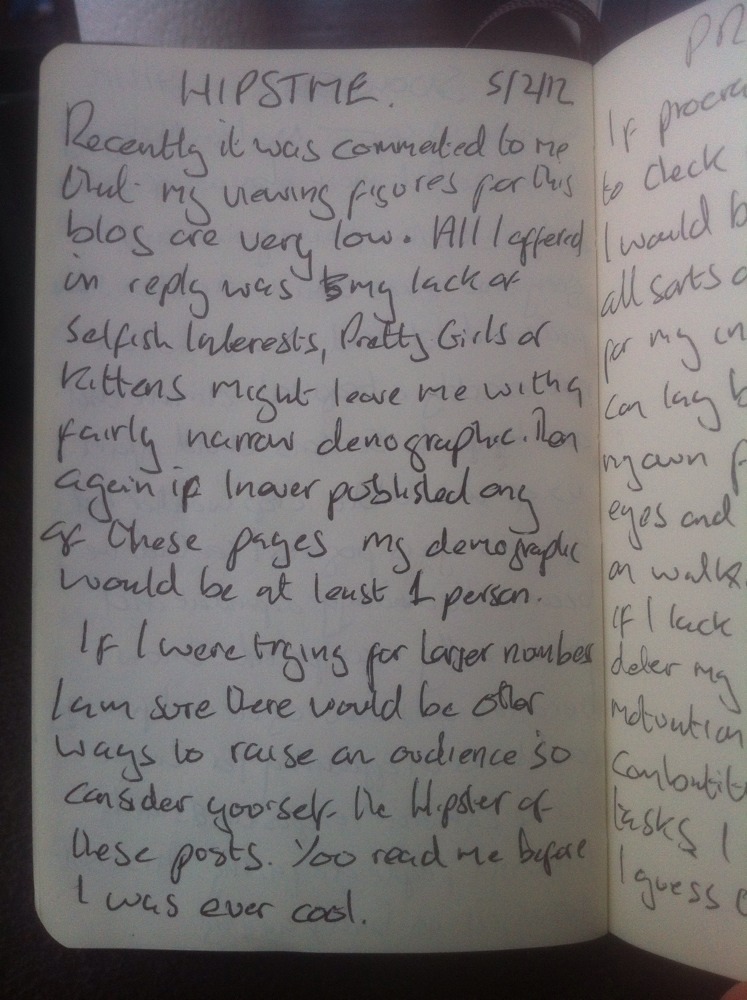 HIPSTME. 5/2/12
Recently it was commented to me
that my viewing figures for this
blog are very low. All I offered
in reply was my lack of
Selfish Interests, Pretty Girls or
Kittens might leave me with a
fairly narrow demographic. Then
again if I never published any
of these pages my demographic
would be at least 1 person.
If I were trying for larger numbers
I am sure there would be other
ways to raise an audience so
consider yourself the Hipster of
these posts. You read me before
I was ever cool.
If procra
to check
I would b
all sorts o
for my in
can lay b
my own f
eyes and
on walks.
If I lack
deter my
motivation
Combatit
tasks I
I guess